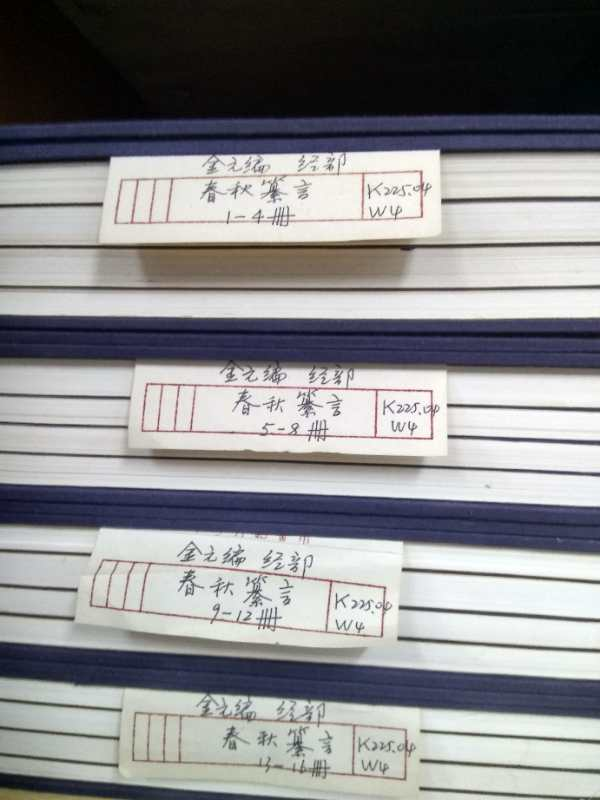 金元编 经部
春秋纂言
1-4册
K225.04
W4
金元编 经部
春秋纂言
5-8册
K225.04
W4
金元编 经部
春秋纂言
9-12册
K225.04
W4
金元编 经部
春秋纂言
13-16册
K225.04
W4